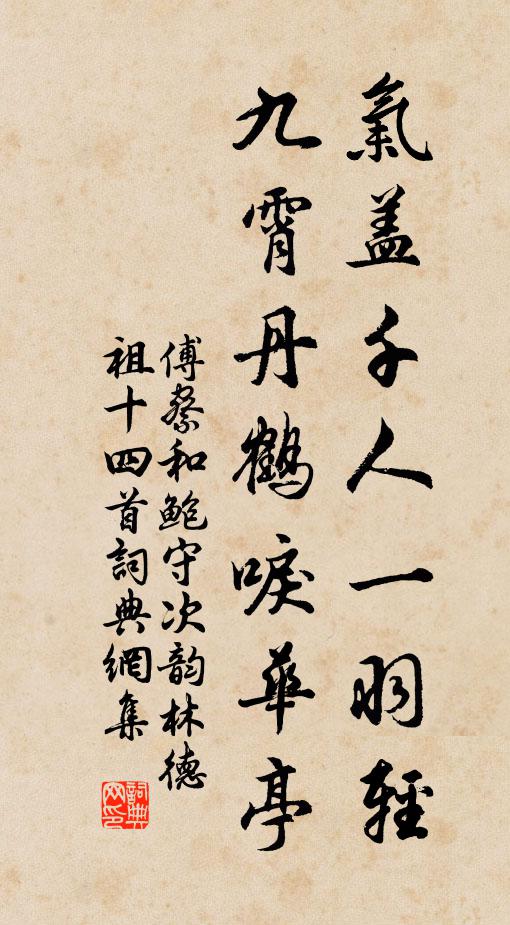 氣蓋千人一羽輕
九霄丹鶴唳華亭
傅察和鮑守次韵林德
祖十四首詞典網集
詞典网印